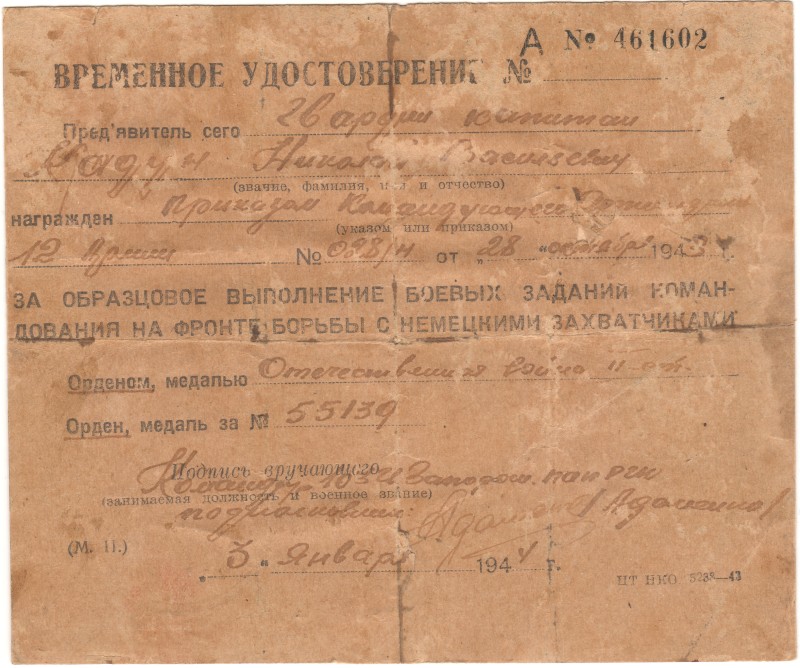 А № 461602
ВРЕМЕННОЕ УДОСТОВЕРЕНИЕ №
Пред'явитель сего гвардии капитан
Николай Васильевич
(звание, фамилия, имя и отчество)
награжден приказом Командующего
(указом или приказом)
12 Армии № 098/н от „28 “ октября 1943 г.
ЗА ОБРАЗЦОВОЕ ВЫПОЛНЕНИЕ БОЕВЫХ ЗАДАНИЙ КОМАН-
ДОВАНИЯ НА ФРОНТЕ БОРЬБЫ С НЕМЕЦКИМИ ЗАХВАТЧИКАМИ
Орденом, медалью Отечественная война II ст.
Орден, медаль за № 55139
Подпись вручающего
Командир
(занимаемая должность и военное звание)
подполковник:
(М. П.)
„ 3 “ Январь 1944 г.
ЦТ НКО 3238—43